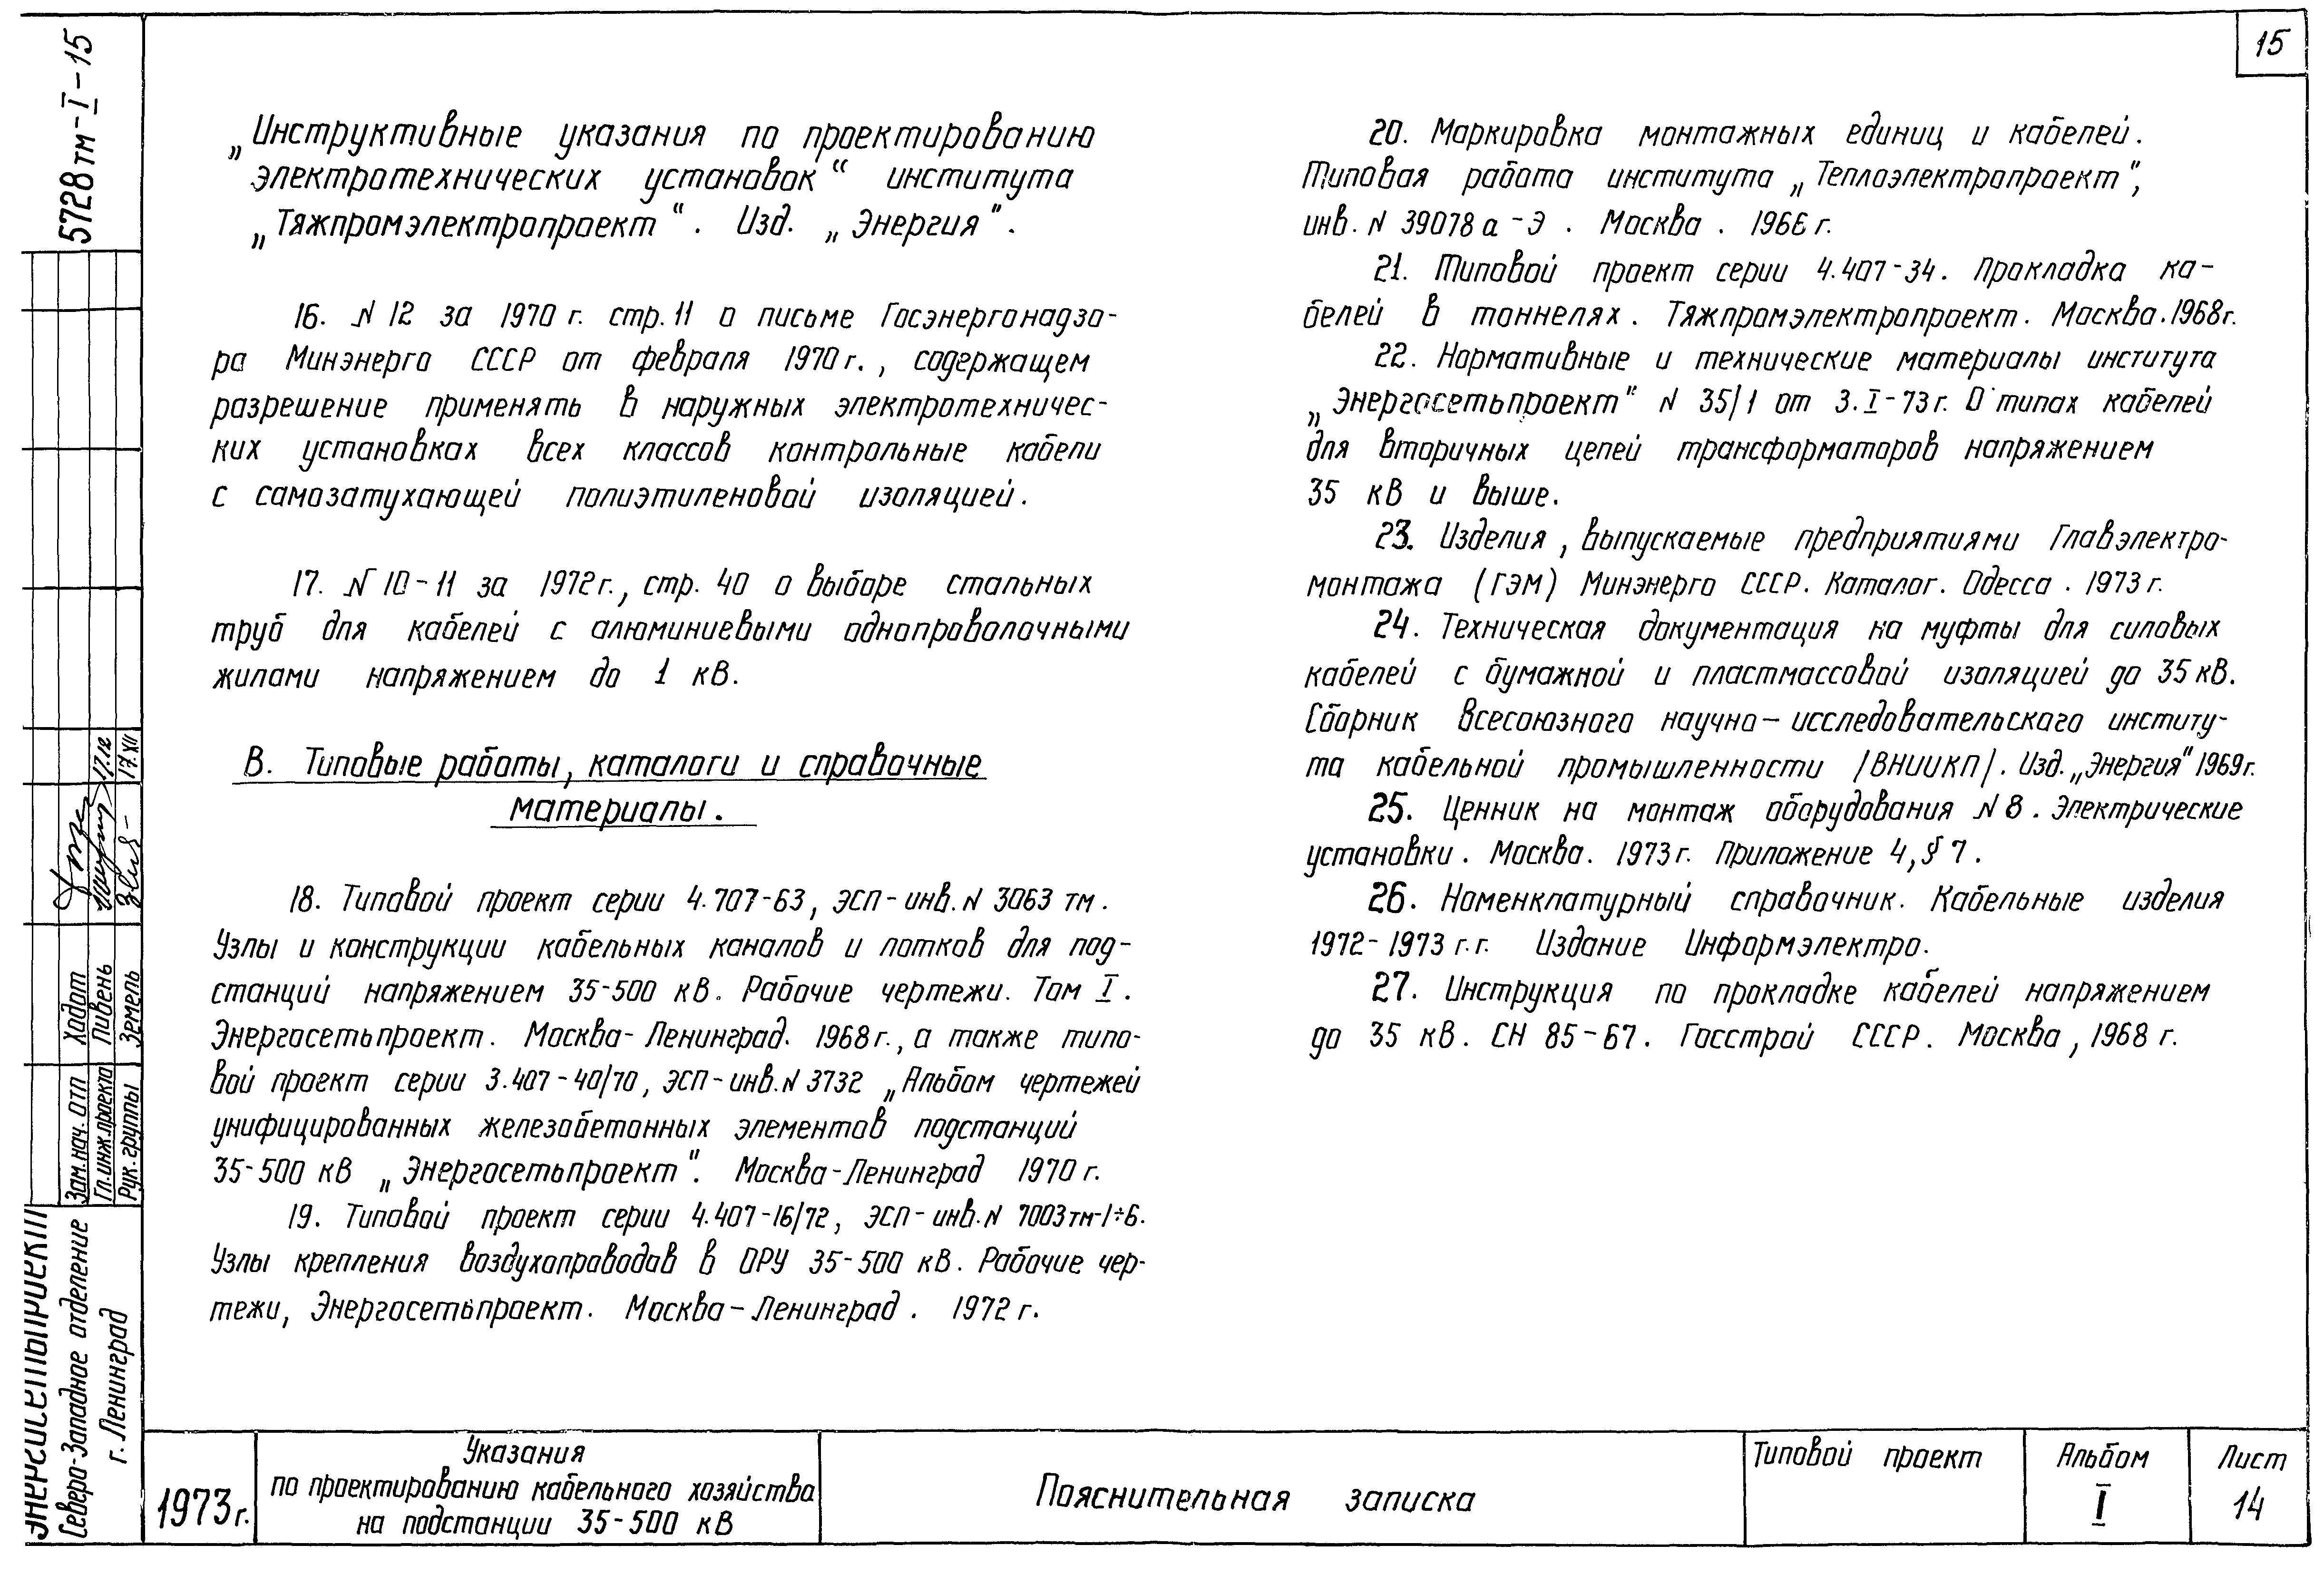 15
„Инструктивные указания по проектированию
электротехнических установок“ института
„Тяжпромэлектропроект“. Изд. „Энергия“.
16. N 12 за 1970 г. стр. 11 о письме Госэнергонадзо-
ра Минэнерго СССР от февраля 1970 г., содержащем
разрешение применять в наружных электротехничес-
ких установках всех классов контрольные кабели
с самозатухающей полиэтиленовой изоляцией.
17. N 10-11 за 1972 г., стр. 40 о выборе стальных
труб для кабелей с алюминиевыми однопроволочными
жилами напряжением до 1 кВ.
В. Типовые работы, каталоги и справочные
материалы.
18. Типовой проект серии 4.707-63, ЭСП-инв. N 3063 тм.
Узлы и конструкции кабельных каналов и лотков для под-
станций напряжением 35-500 кВ. Рабочие чертежи. Том I.
Энергосетьпроект. Москва-Ленинград. 1968 г., а также типо-
вой проект серии 3.407-40/70, ЭСП-инв. N 3732 „Альбом чертежей
унифицированных железобетонных элементов подстанций
35-500 кВ „Энергосетьпроект“. Москва-Ленинград 1970 г.
19. Типовой проект серии 4.407-16/72, ЭСП-инв. N 7003тм-1÷6.
Узлы крепления воздухопроводов в ОРУ 35-500 кВ. Рабочие чер-
тежи, Энергосетьпроект. Москва-Ленинград. 1972 г.
20. Маркировка монтажных единиц и кабелей.
Типовая работа института „Теплоэлектропроект“,
инв. N 39078 а-Э. Москва. 1966 г.
21. Типовой проект серии 4.407-34. Прокладка ка-
белей в тоннелях. Тяжпромэлектропроект. Москва. 1968 г.
22. Нормативные и технические материалы института
„Энергосетьпроект“ N 35/1 от 3.I-73 г. О типах кабелей
для вторичных цепей трансформаторов напряжением
35 кВ и выше.
23. Изделия, выпускаемые предприятиями Главэлектро-
монтажа (ГЭМ) Минэнерго СССР. Каталог. Одесса. 1973 г.
24. Техническая документация на муфты для силовых
кабелей с бумажной и пластмассовой изоляцией до 35 кВ.
Сборник Всесоюзного научно-исследовательского институ-
та кабельной промышленности /ВНИИКП/. Изд. „Энергия“ 1969 г.
25. Ценник на монтаж оборудования N 8. Электрические
установки. Москва. 1973 г. Приложение 4, § 7.
26. Номенклатурный справочник. Кабельные изделия
1972-1973 г.г. Издание Информэлектро.
27. Инструкция по прокладке кабелей напряжением
до 35 кВ. СН 85-67. Госстрой СССР. Москва, 1968 г.
5728 тм-I-15
17.12
17.XII
Зам. нач. ОТП Ходот
Гл. инж. проекта Пивень
Рук. группы Земель
Энергосетьпроект
Северо-Западное отделение
г. Ленинград
1973 г.
Указания
по проектированию кабельного хозяйства
на подстанции 35-500 кВ
Пояснительная записка
Типовой проект
Альбом
I
Лист
14